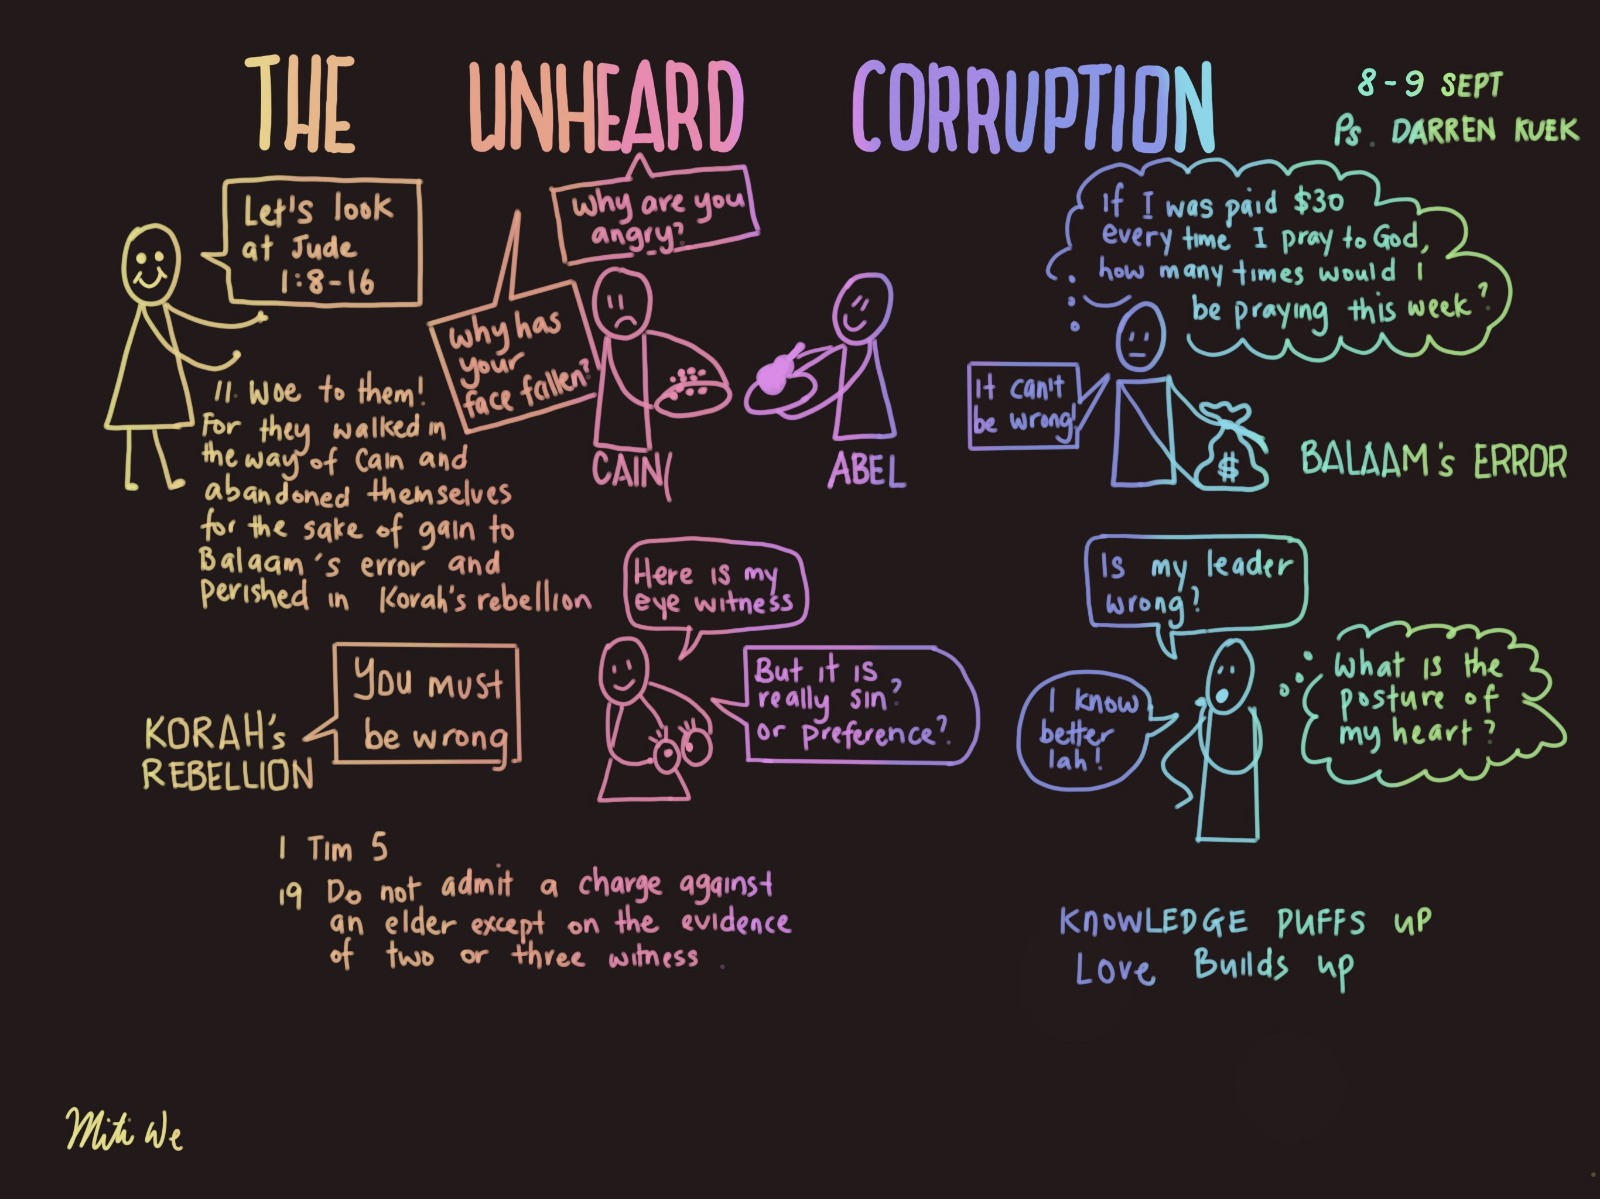 THE UNHEARD CORRUPTION
8-9 SEPT
Ps. DARREN KUEK
Let's look
at Jude
1:8-16
Why are you
angry?
Why has
your
face fallen?
If I was paid $30
every time I pray to God,
how many times would I
be praying this week?
It can't
be wrong!
$
CAIN
ABEL
BALAAM's ERROR
11. Woe to them!
For they walked in
the way of Cain and
abandoned themselves
for the sake of gain to
Balaam's error and
perished in Korah's rebellion
KORAH's
REBELLION
You must
be wrong
Here is my
eye witness
But it is
really sin?
or preference?
Is my leader
wrong?
I know
better
lah!
What is the
posture of
my heart?
1 Tim 5
19 Do not admit a charge against
an elder except on the evidence
of two or three witness.
KNOWLEDGE PUFFS UP
LOVE Builds up